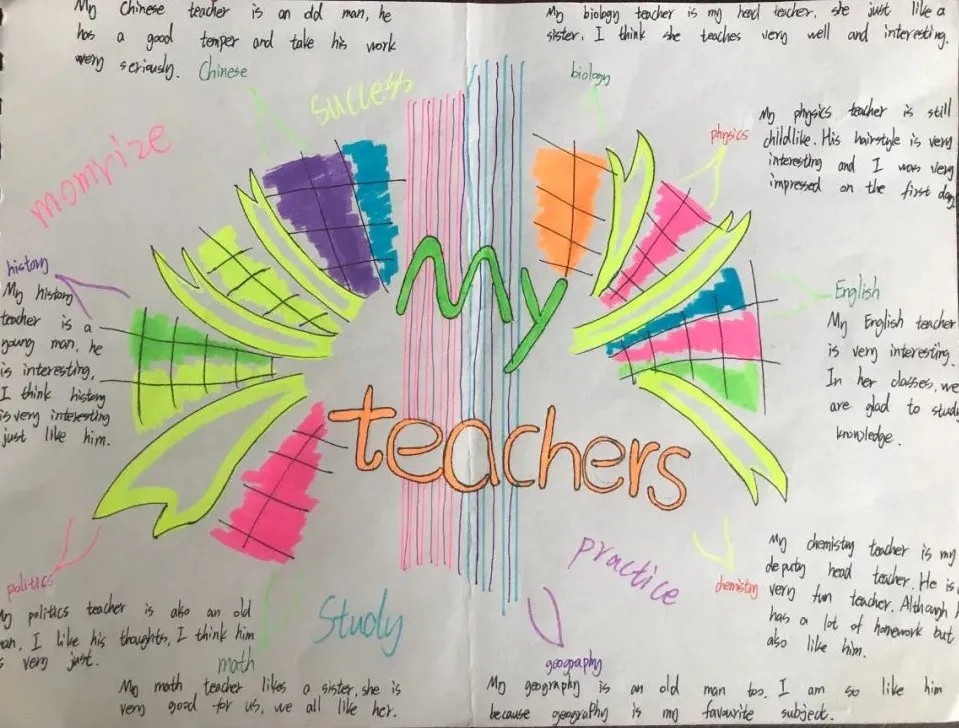 My Chinese teacher is an old man, he
has a good temper and take his work
very seriously.
Chinese
My biology teacher is my head teacher. she just like a
sister. I think she teaches very well and interesting.
biology
success
momrize
physics
My physics teacher is still
childlike. His hairstyle is very
interesting and I was very
impressed on the first day
history
My history
teacher is a
young man, he
is interesting,
I think history
is very interesting
just like him.
My
teachers
English
My English teacher
is very interesting.
In her classes, we
are glad to study
knowledge.
practice
Study
chemistry
My chemistry teacher is my
deputy head teacher. He is
very fun teacher. Although
has a lot of homework but
also like him.
politics
My politics teacher is also an old
man. I like his thoughts. I think him
is very just.
math
My math teacher likes a sister, she is
very good for us, we all like her.
geography
My geography is an old man too. I am so like him
because geography is my favourite subject.